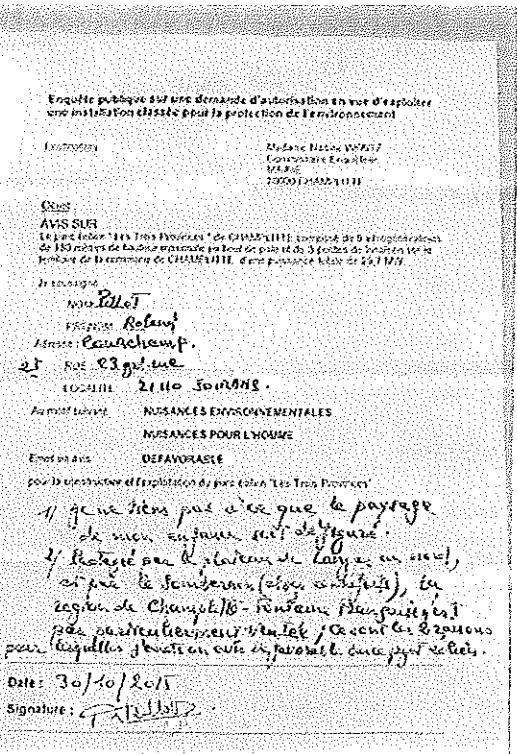 Enquête publique sur une demande d'autorisation en vue d'exploiter
une installation classée pour la protection de l'environnement
Madame Nadine WANTZ
Commissaire Enquêteur
MAIRIE
70600 CHAMPLITTE
Objet
AVIS SUR
Le parc éolien "Les Trois Provinces" de CHAMPLITTE composé de 8 aérogénérateurs
de 180 mètres de hauteur maximale en bout de pale et de 3 postes de livraison sur le
territoire de la commune de CHAMPLITTE d'une puissance totale de MW
Je soussigné
NOM
PRENOM Roland
Adresse : Courchamp.
25 RUE
LOCALITE 21110
Au motif suivant NUISANCES ENVIRONNEMENTALES
NUISANCES POUR L'HOMME
Emet un avis DEFAVORABLE
pour la construction et l'exploitation du parc éolien "Les Trois Provinces"
1) je ne tiens pas à ce que le paysage
de mon enfance soit défiguré.
2/ Protégé par le plateau de Langres au nord,
et par le Sombernon ( ), la
région de Champlitte - Fontaine Française n'est
pas particulièrement ventée, ce sont les raisons
pour lesquelles j'émets un avis défavorable à ce projet éolien.
Date : 30/10/2015
Signature :